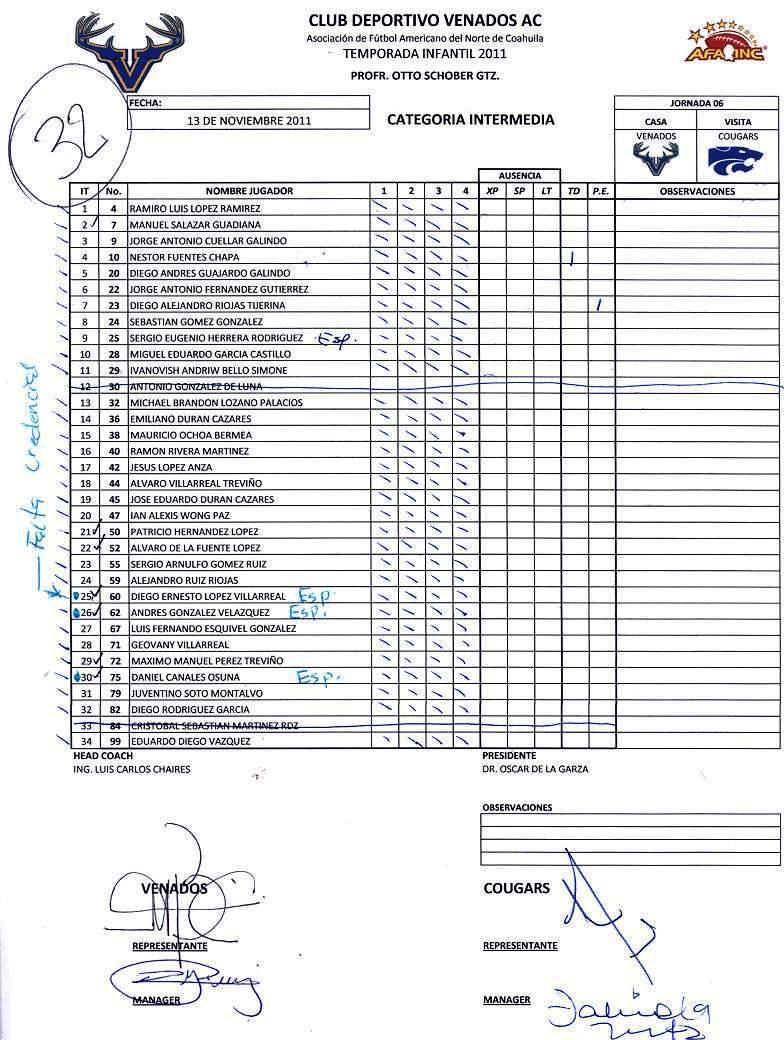 CLUB DEPORTIVO VENADOS AC
Asociación de Fútbol Americano del Norte de Coahuila
TEMPORADA INFANTIL 2011
PROFR. OTTO SCHOBER GTZ.
AFAINC
32
FECHA:
13 DE NOVIEMBRE 2011
CATEGORIA INTERMEDIA
JORNADA 06
CASA VISITA
VENADOS COUGARS
AUSENCIA
IT No. NOMBRE JUGADOR 1 2 3 4 XP SP LT TD P.E. OBSERVACIONES
1 4 RAMIRO LUIS LOPEZ RAMIREZ
2 7 MANUEL SALAZAR GUADIANA
3 9 JORGE ANTONIO CUELLAR GALINDO
4 10 NESTOR FUENTES CHAPA 1
5 20 DIEGO ANDRES GUAJARDO GALINDO
6 22 JORGE ANTONIO FERNANDEZ GUTIERREZ
7 23 DIEGO ALEJANDRO RIOJAS TIJERINA 1
8 24 SEBASTIAN GOMEZ GONZALEZ
9 25 SERGIO EUGENIO HERRERA RODRIGUEZ Esp.
10 28 MIGUEL EDUARDO GARCIA CASTILLO
11 29 IVANOVISH ANDRIW BELLO SIMONE
12 30 ANTONIO GONZALEZ DE LUNA
13 32 MICHAEL BRANDON LOZANO PALACIOS
14 36 EMILIANO DURAN CAZARES
15 38 MAURICIO OCHOA BERMEA
16 40 RAMON RIVERA MARTINEZ
17 42 JESUS LOPEZ ANZA
18 44 ALVARO VILLARREAL TREVIÑO
19 45 JOSE EDUARDO DURAN CAZARES
20 47 IAN ALEXIS WONG PAZ
21 50 PATRICIO HERNANDEZ LOPEZ
22 52 ALVARO DE LA FUENTE LOPEZ
23 55 SERGIO ARNULFO GOMEZ RUIZ
24 59 ALEJANDRO RUIZ RIOJAS
25 60 DIEGO ERNESTO LOPEZ VILLARREAL Esp.
26 62 ANDRES GONZALEZ VELAZQUEZ Esp.
27 67 LUIS FERNANDO ESQUIVEL GONZALEZ
28 71 GEOVANY VILLARREAL
29 72 MAXIMO MANUEL PEREZ TREVIÑO
30 75 DANIEL CANALES OSUNA Esp.
31 79 JUVENTINO SOTO MONTALVO
32 82 DIEGO RODRIGUEZ GARCIA
33 84 CRISTOBAL SEBASTIAN MARTINEZ RDZ
34 99 EDUARDO DIEGO VAZQUEZ
Falta Credencial
HEAD COACH PRESIDENTE
ING. LUIS CARLOS CHAIRES DR. OSCAR DE LA GARZA
OBSERVACIONES
VENADOS COUGARS
REPRESENTANTE REPRESENTANTE
MANAGER MANAGER